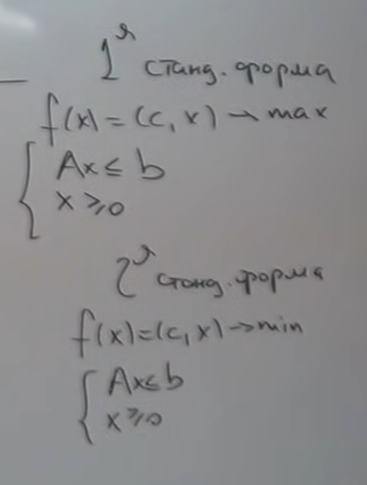 1ᴬ станд. форма
f(x) = (c, x) → max
Ax ≤ b
x ≥ 0
2ᴬ станд. форма
f(x) = (c, x) → min
Ax ≤ b
x ≥ 0